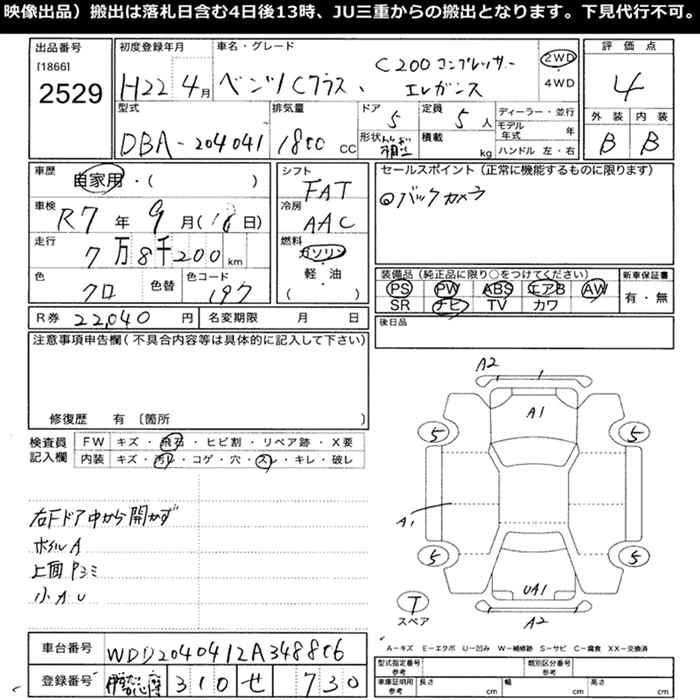 映像出品）搬出は落札日含む4日後13時、JU三重からの搬出となります。下見代行不可。
出品番号 初度登録年月 車名・グレード 評価点
[1866] C200コンプレッサー 2WD
2529 H22年4月 ベンツCクラス、エレガンス 4WD 4
型式 排気量 ドア 定員 ディーラー・並行 外装 内装
DBA-204041 1800cc 5 5人 モデル年式 年 B B
形状 積載 kg ハンドル 左・右
車歴 シフト セールスポイント（正常に機能するものに限ります）
自家用・( ) FAT ○バックカメラ
車検 冷房
R7年9月(18日) AAC
走行 燃料
7万8千200km ガソリン
軽・油
( )
装備品（純正品に限り○をつけてください） 新車保証書
色 色替 色コード PS PW ABS エアB AW 有・無
クロ 197 SR ナビ TV カワ
R券 22,040円 名変期限 月 日 後日品
注意事項申告欄（不具合内容等は具体的に記入して下さい）
修復歴 有 〔箇所 〕
検査員 FW キズ・飛石・ヒビ割・リペア跡・X要
記入欄 内装 キズ・汚レ・コゲ・穴・スレ・キレ・破レ
A2
A1
5 5
A1
5 5
UA1
A2
T
スペア
右Fドア中から開かず
ホイルA
上面Pヨミ
小AU
A-キズ E-エクボ U-凹み W-補修跡 S-サビ C-腐食 XX-交換済
車台番号 WDD2040412A348806
型式指定番号 参考 類別区分番号 参考
登録番号 310 せ 730
車庫証明用 参考 長さ cm 幅 cm 高さ cm